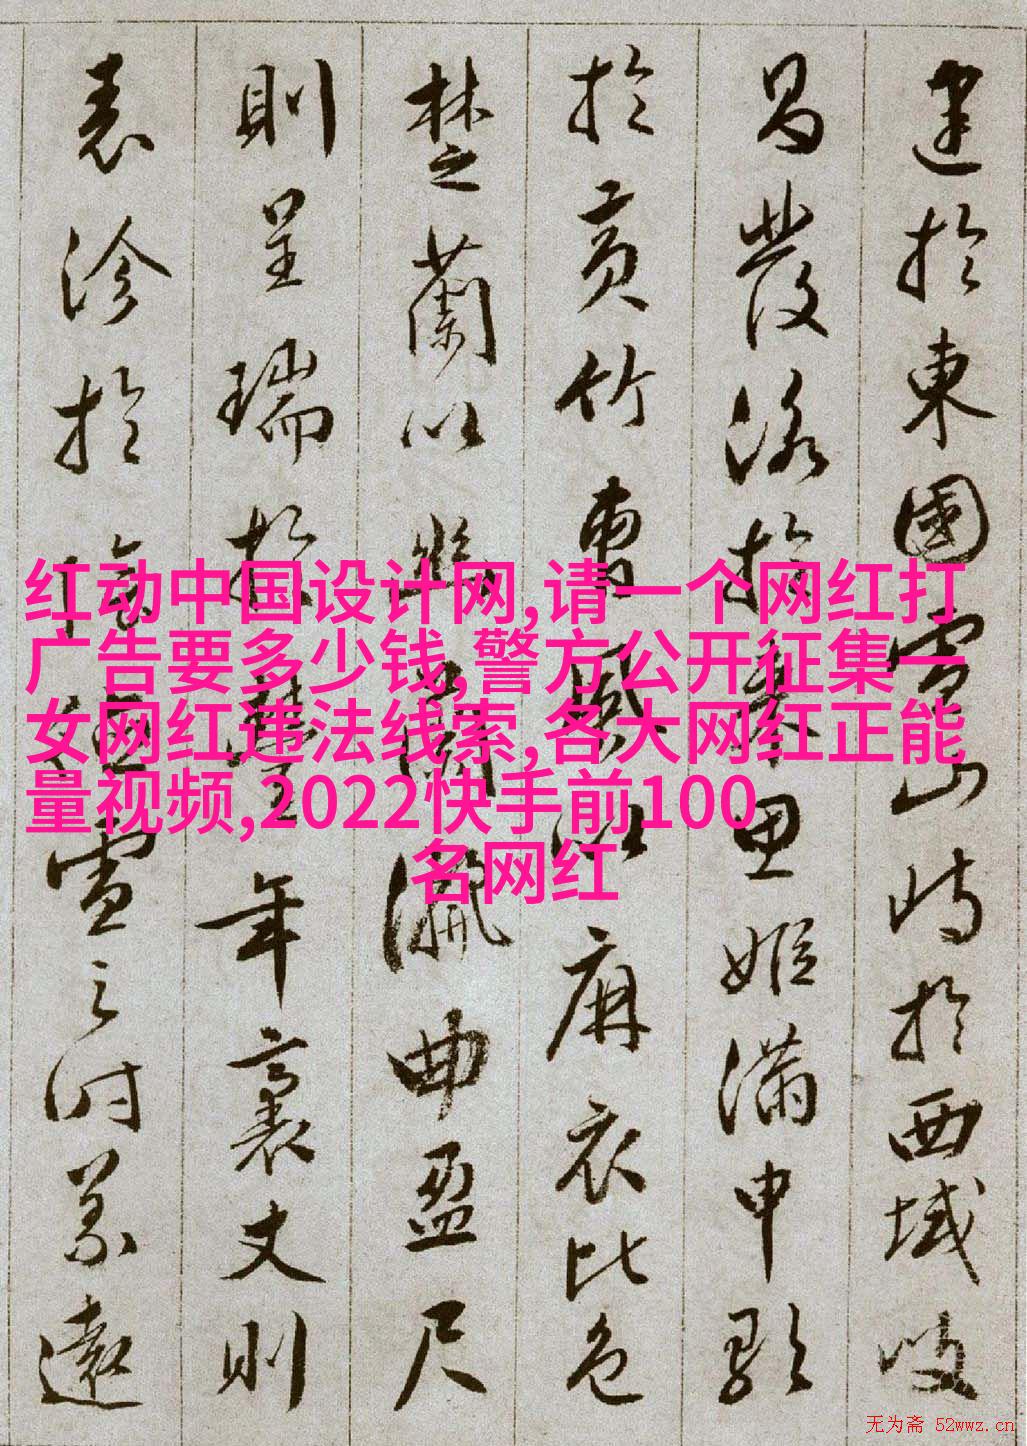 建於東國雪山峙於西域岐
昌發詠於来思姬滿申歌
於黄竹曹風以麻衣比色
楚蘭以幽蘭儷曲盈尺
則呈瑞於豐年袤丈則
表沴於陰德雪之時義遠
红动中国设计网,请一个网红打
广告要多少钱,警方公开征集一
女网红违法线索,各大网红正能
量视频,2022快手前100
名网红
无为斋 52wwz.cn